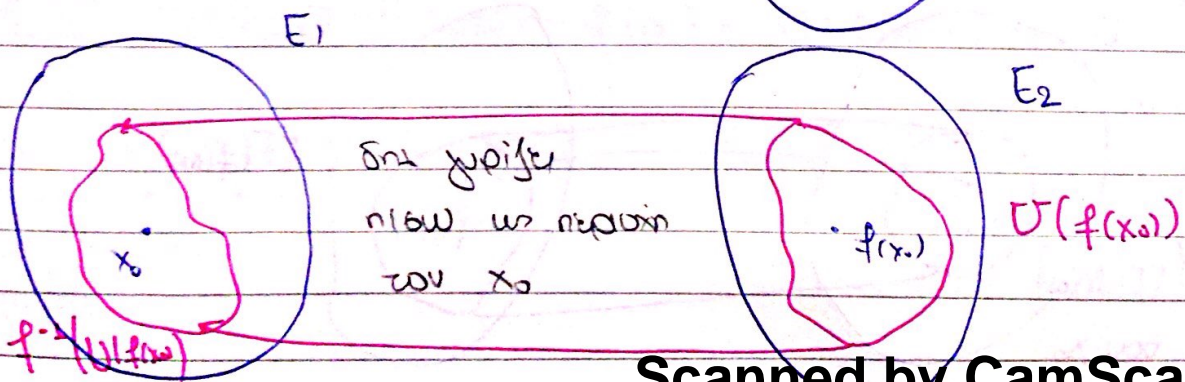 E1
E2
δηλ γυρίζει
πίσω ως περιοχή
του x₀
x₀
f(x₀)
U(f(x₀))
f⁻¹(U(f(x₀))
Scanned by CamSca